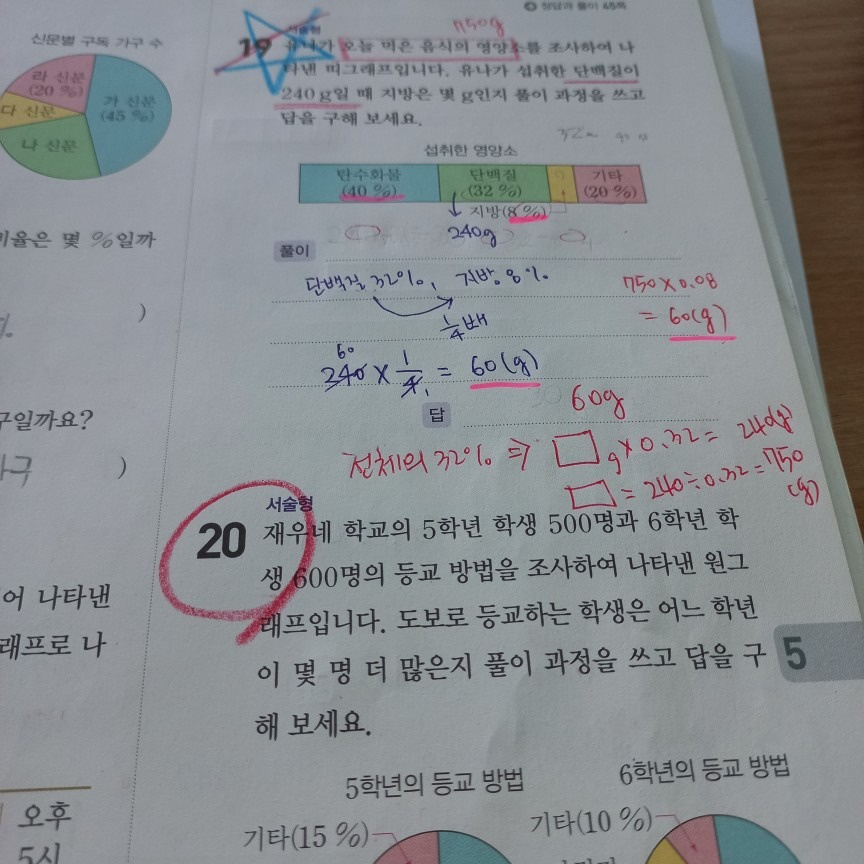 정답과 풀이 45쪽
신문별 구독 가구 수
라 신문
(20 %)
다 신문
가 신문
(45 %)
나 신문
비율은 몇 %일까
)
구일까요?
가구 )
어 나타낸
래프로 나
오후
5시
750g
서술형
19 유나가 오늘 먹은 음식의 영양소를 조사하여 나
타낸 띠그래프입니다. 유나가 섭취한 단백질이
240 g일 때 지방은 몇 g인지 풀이 과정을 쓰고
답을 구해 보세요.
섭취한 영양소
탄수화물
(40 %)
단백질
(32 %)
기타
(20 %)
지방(8 %)
240g
풀이
단백질 32%, 지방 8%
1/4배
240 × 1/4 = 60(g)
60 1
750×0.08
= 60(g)
답 60g
전체의 32% ⇒ □g×0.32= 240(g)
□=240÷0.32=750
(g)
서술형
20 재우네 학교의 5학년 학생 500명과 6학년 학
생 600명의 등교 방법을 조사하여 나타낸 원그
래프입니다. 도보로 등교하는 학생은 어느 학년
이 몇 명 더 많은지 풀이 과정을 쓰고 답을 구
해 보세요.
5
5학년의 등교 방법
기타(15 %)
6학년의 등교 방법
기타(10 %)